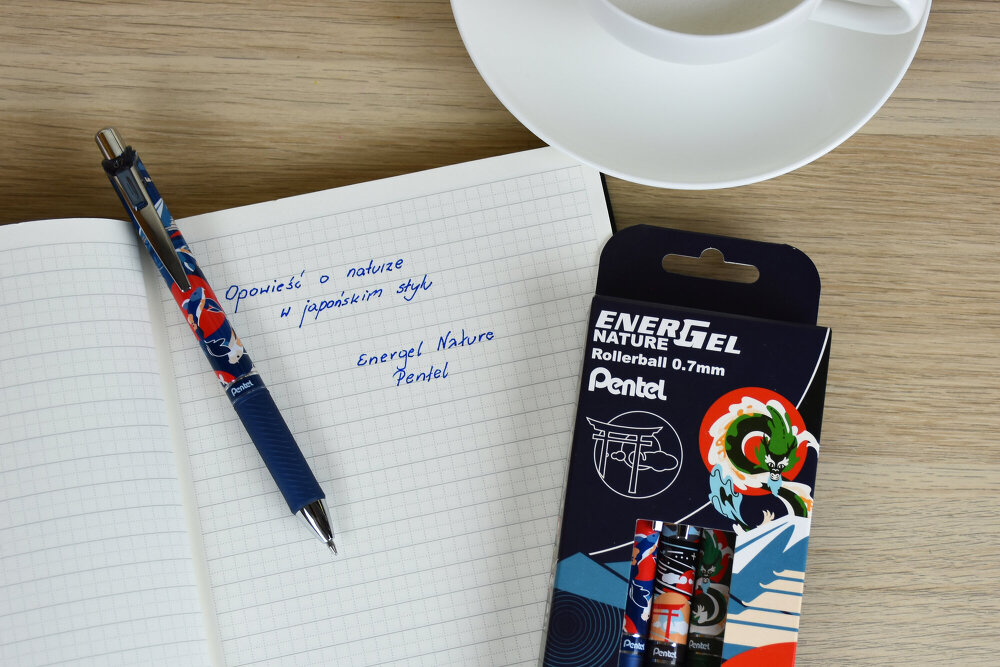 Opowieść o naturze
w japońskim stylu
Energel Nature
Pentel
Pentel
ENERGEL
NATURE
Rollerball 0.7mm
Pentel
Pentel
Pentel
Pentel